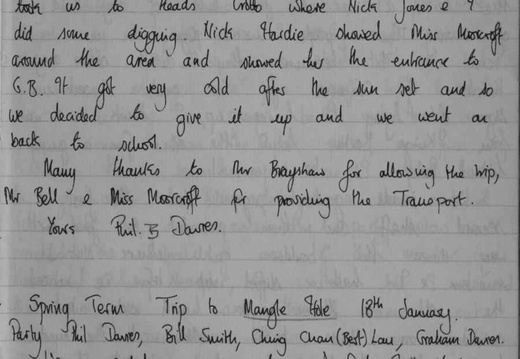 took us to Heads Grotto where Nick Jones & I
did some digging. Nick Hardie showed Miss Moorcroft
around the area and showed her the entrance to
G.B. It got very cold after the sun set and so
we decided to give it up and we went on
back to school.
Many thanks to Mr Brayshaw for allowing the trip,
Mr Bell & Miss Moorcroft for providing the Transport.
Yours Phil. B Davies.
Spring Term Trip to Mangle Hole 18th January.
Party Phil Davies, Bill Smith, Ching Chan (Best) Lau, Graham Davies.